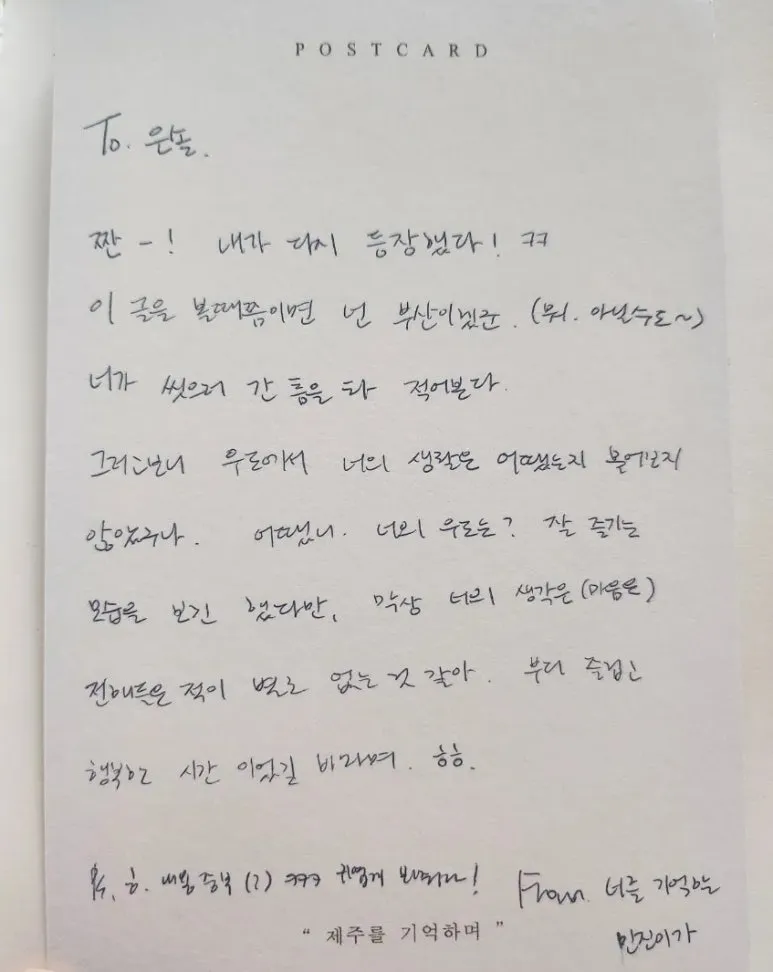 POSTCARD
To. 완돌.
짠 - ! 내가 다시 등장했다! ㅋㅋ
이 글을 볼때쯤이면 넌 부산이겠군. (뭐. 아닐수도~)
너가 씻으러 간 틈을 타 적어본다.
그러고보니 우도에서 너의 생활은 어땠는지 물어보지
않았구나. 어땠니. 너의 우도는? 잘 즐기는
모습을 보긴 했다만, 막상 너의 생각은(마음은)
전해들은 적이 별로 없는 것 같아. 부디 즐겁고
행복한 시간 이었길 바라며. 흐흐.
흐. 내용중복 (?) ㅋㅋㅋ 귀엽게 봐주라!
From. 너를 기억하는
민진이가
“ 제주를 기억하며 ”